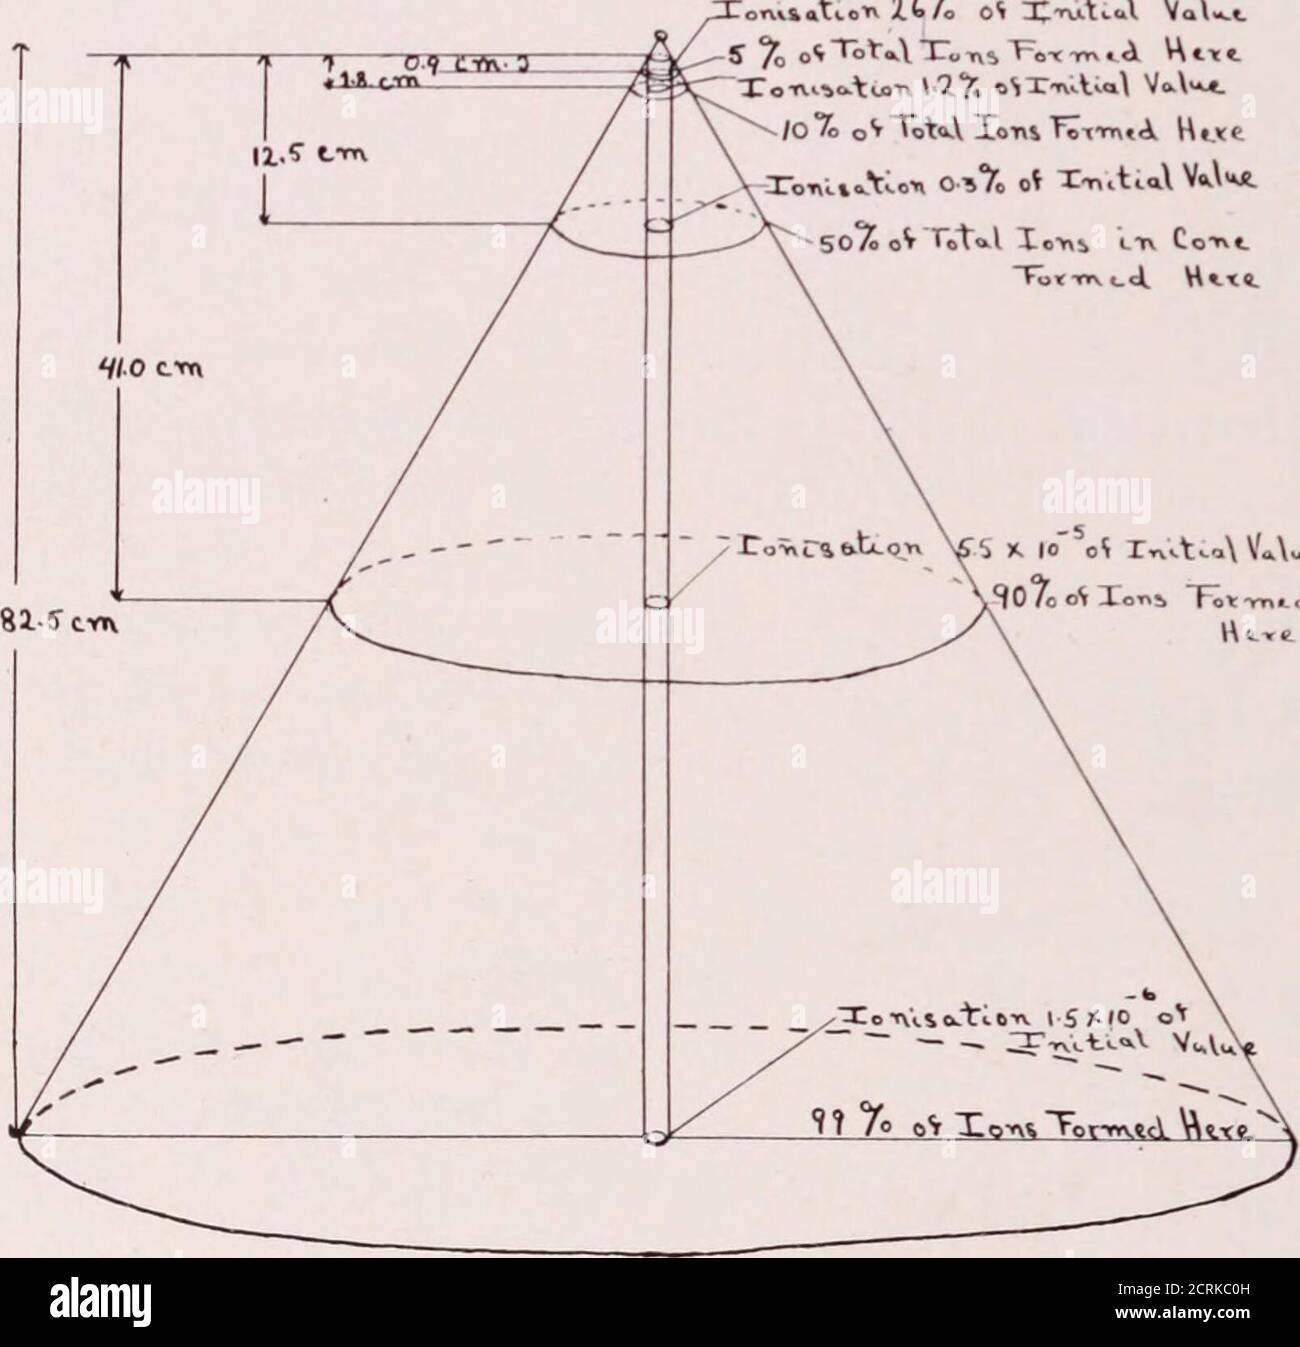 Ionisation 26% of Initial Value
0.9 cm.
5% of Total Ions Formed Here
1.8 cm
Ionisation 1.2% of Initial Value
10% of Total Ions Formed Here
12.5 cm
Ionisation 0.3% of Initial Value
50% of Total Ions in Cone
Formed Here
41.0 cm
Ionisation 5.5 x 10⁻⁵ of Initial Valu
90% of Ions Formed
Here
82.5 cm
Ionisation 1.5 x 10⁻⁶ of
Initial Value
99% of Ions Formed Here
alamy
Image ID: 2CRKC0H
www.alamy.com